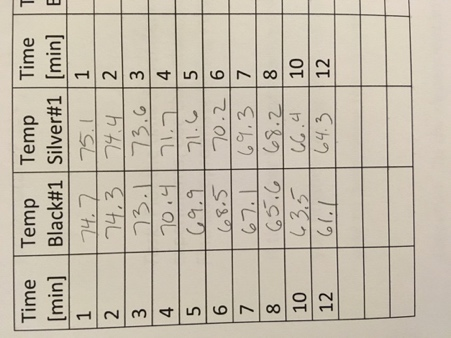 Time Temp Temp Time
[min] Black#1 Silver#1 [min]
1 74.7 75.1 1
2 74.3 74.4 2
3 73.1 73.6 3
4 70.4 71.7 4
5 69.9 71.6 5
6 68.5 70.2 6
7 67.1 69.3 7
8 65.6 68.2 8
10 63.5 66.4 10
12 61.1 64.3 12